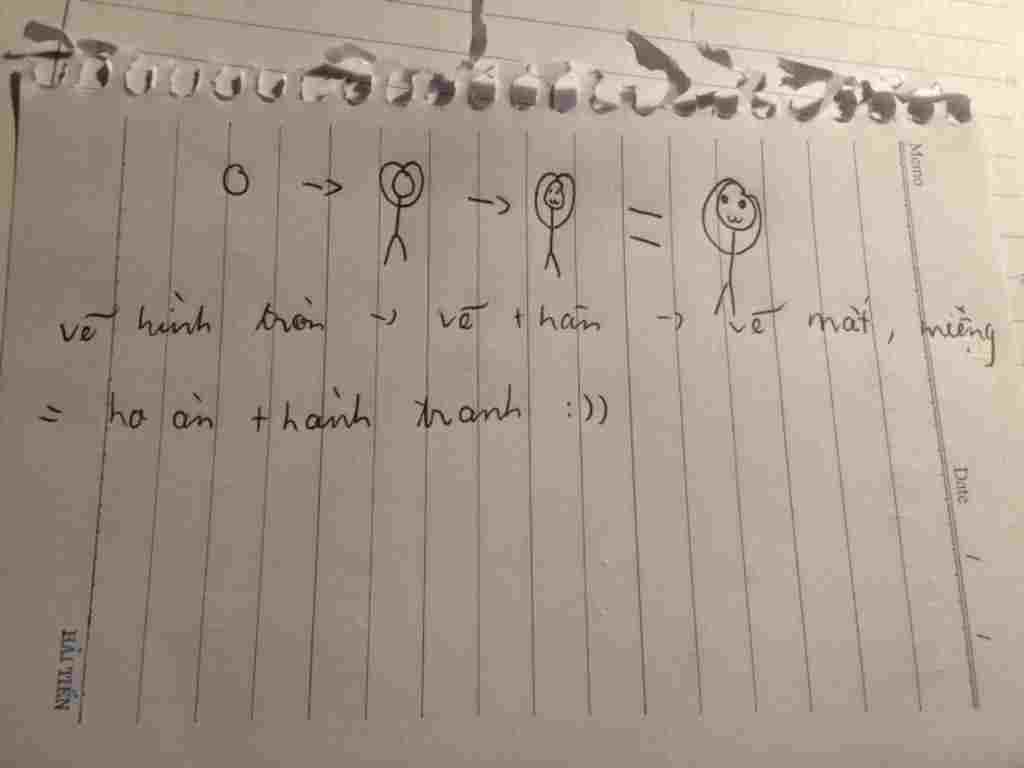 Memo
vẽ hình tròn -> vẽ thân -> vẽ mắt, miệng
= hoàn thành tranh :))
Date
HẢI TIẾN